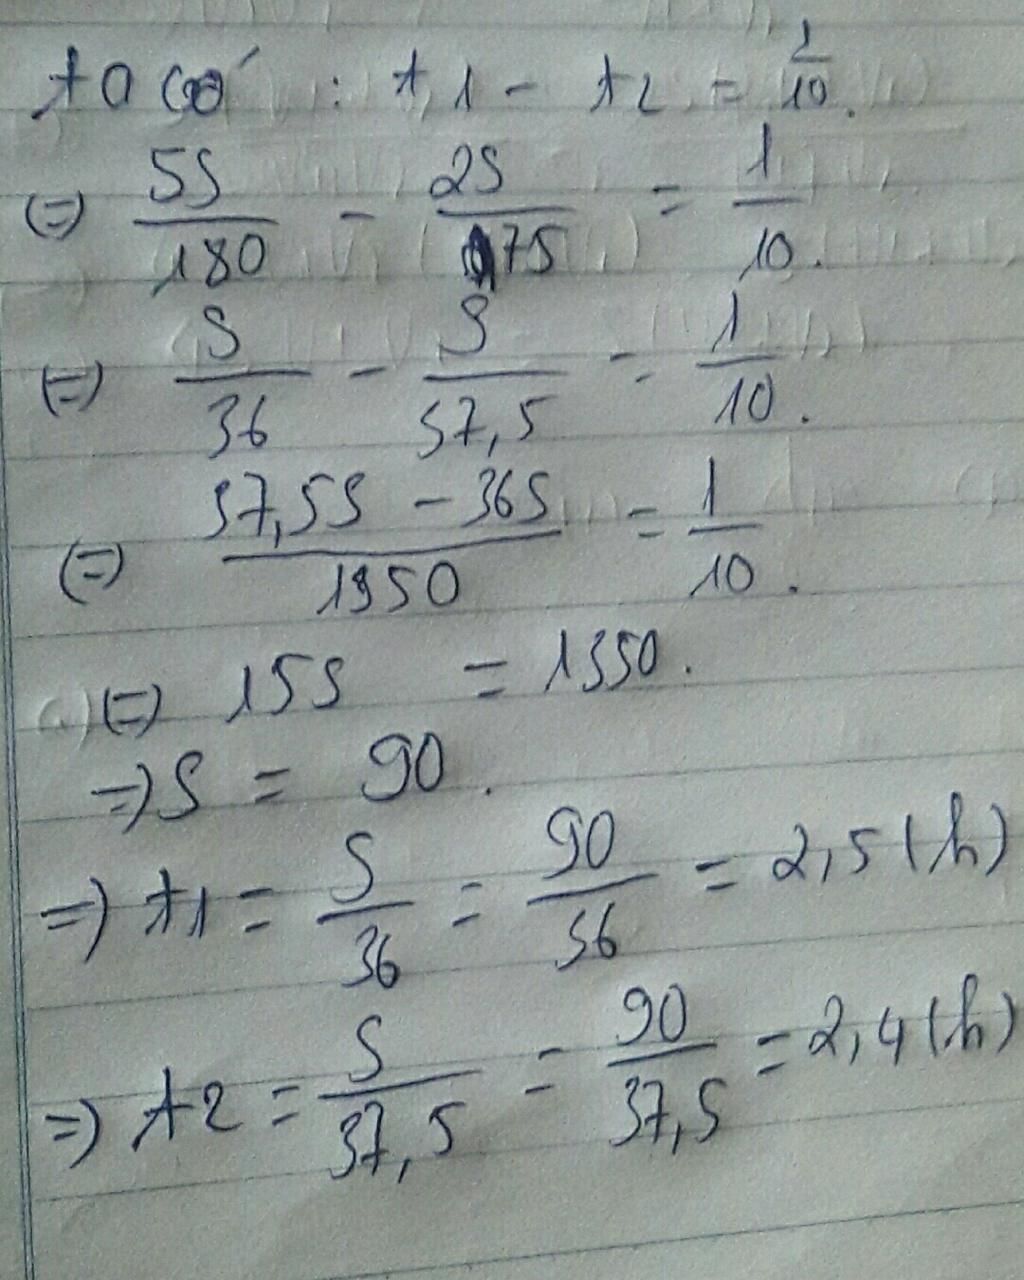 ta có : t1 - t2 = 1/10.
(=) 5S/180 - 2S/75 = 1/10.
(=) S/36 - S/37,5 = 1/10.
(=) 37,5S - 36S/1350 = 1/10.
(=) 15S = 1350.
=) S = 90.
=) t1 = S/36 = 90/36 = 2,5 (h)
=) t2 = S/37,5 = 90/37,5 = 2,4 (h)